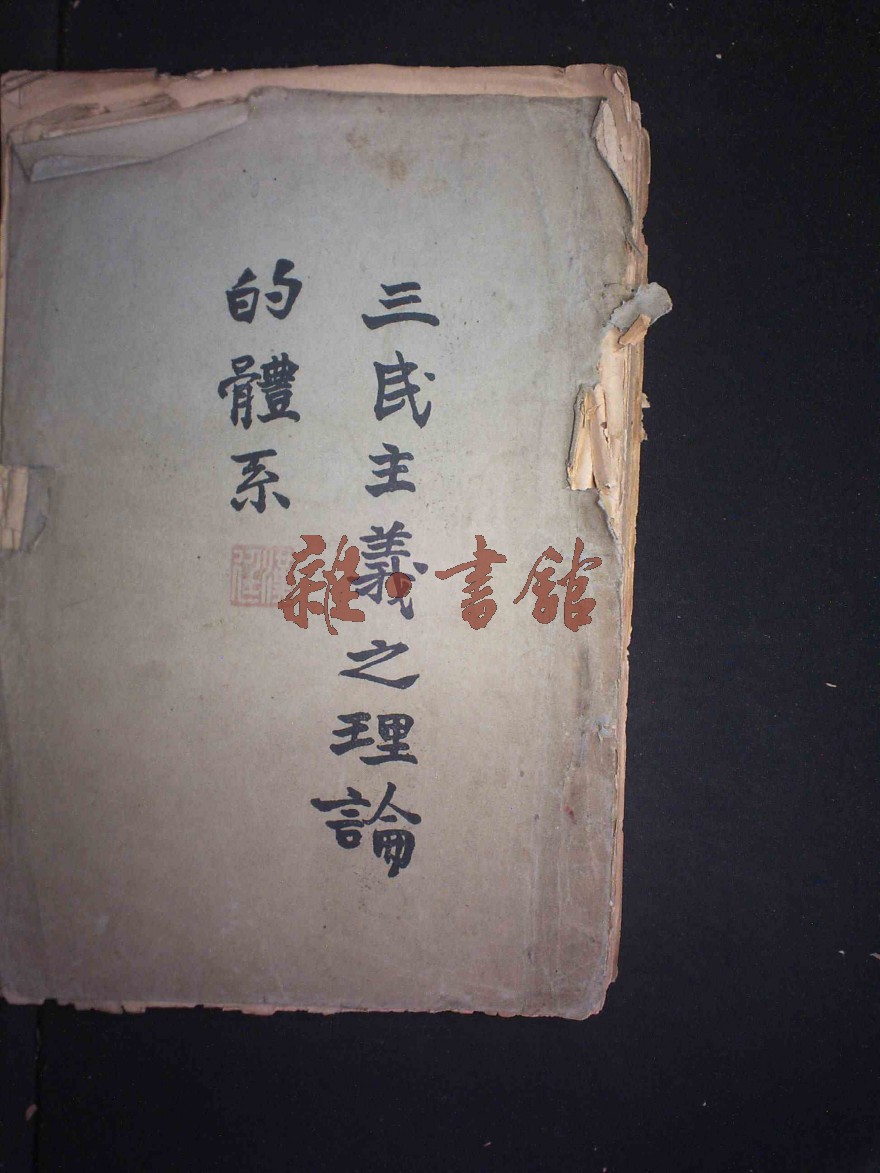 三民主義之理論
的體系
雜·書館